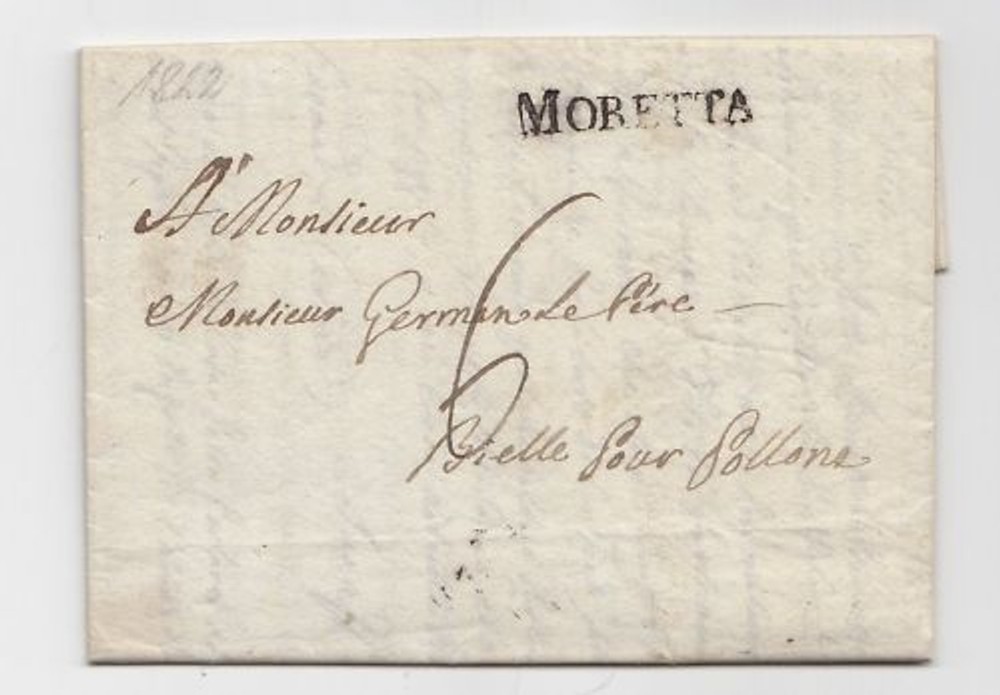 1822
MORETTA
A' Monsieur
Monsieur German Le Pére
6
Bielle pour Pollone